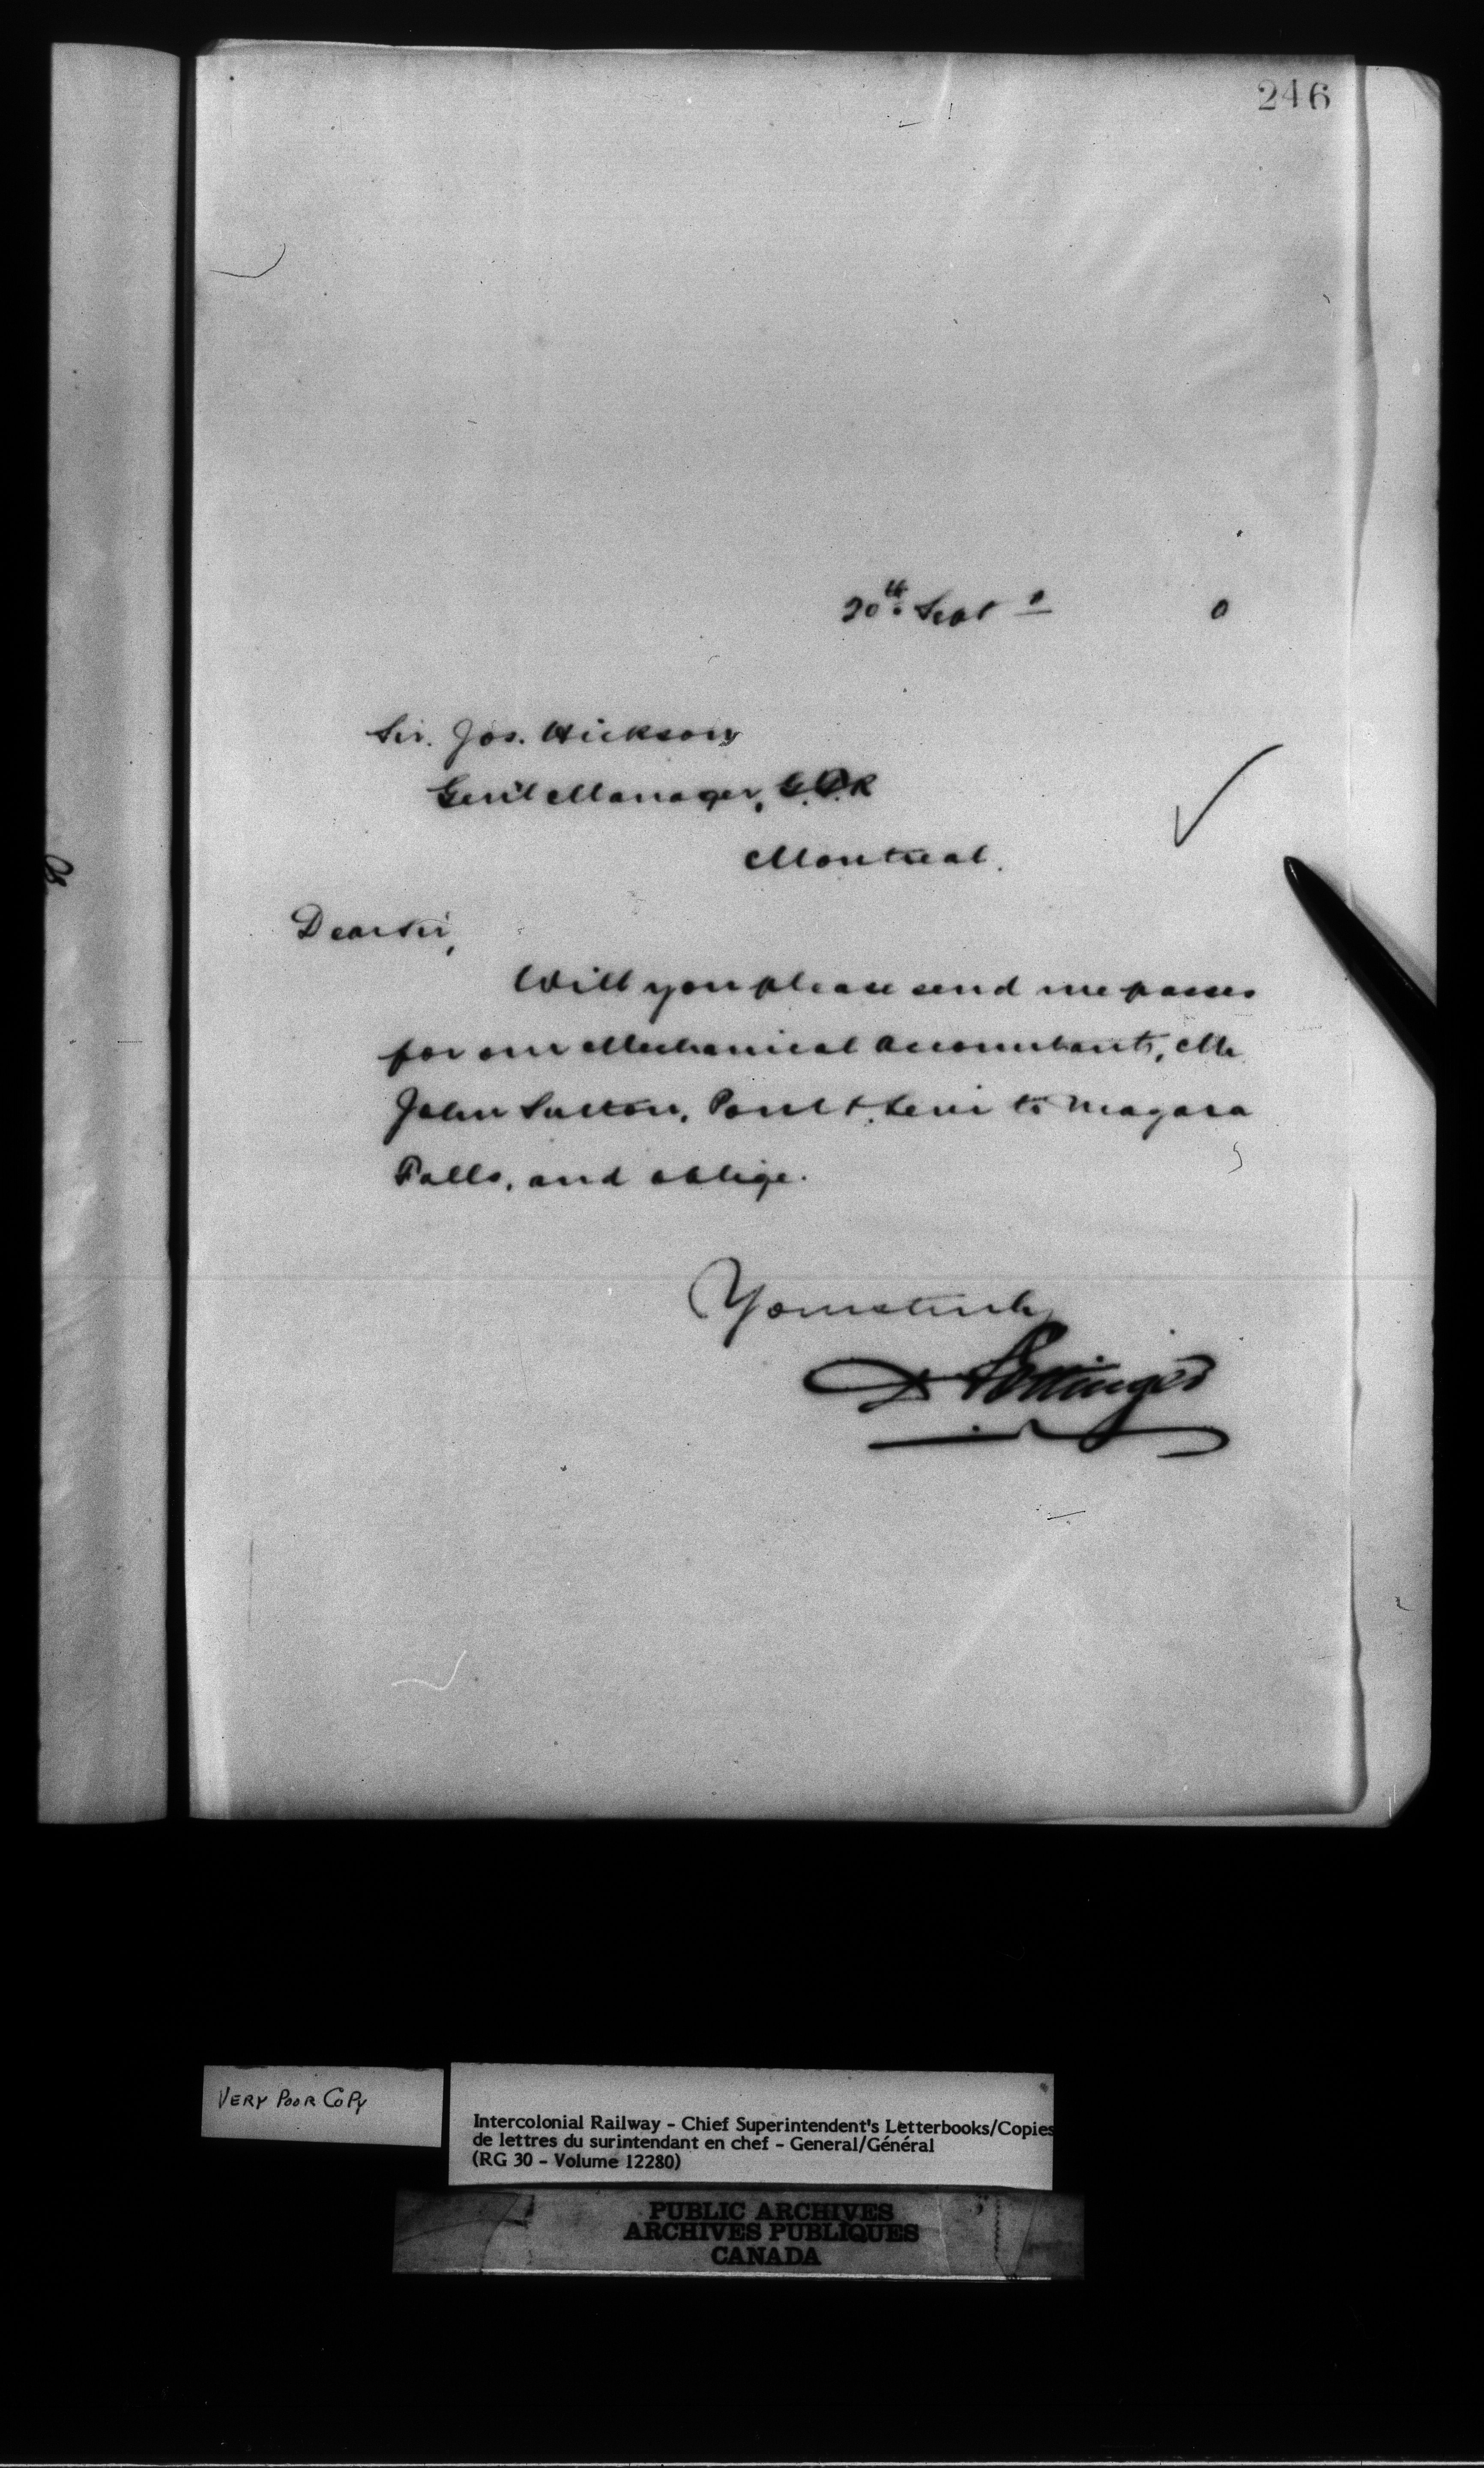 246
20th Sept 0
Sir. Jos. Hickson
Gen'l Manager, G.T.R
Montreal.
Dear Sir,
Will you please send me passes
for our Mechanical Accountant, Mr
John Sutton, Point Levi to Niagara
Falls, and oblige.
Yours truly
D Pottinger
VERY POOR COPY
Intercolonial Railway - Chief Superintendent's Letterbooks/Copies
de lettres du surintendant en chef - General/Général
(RG 30 - Volume 12280)
PUBLIC ARCHIVES
ARCHIVES PUBLIQUES
CANADA